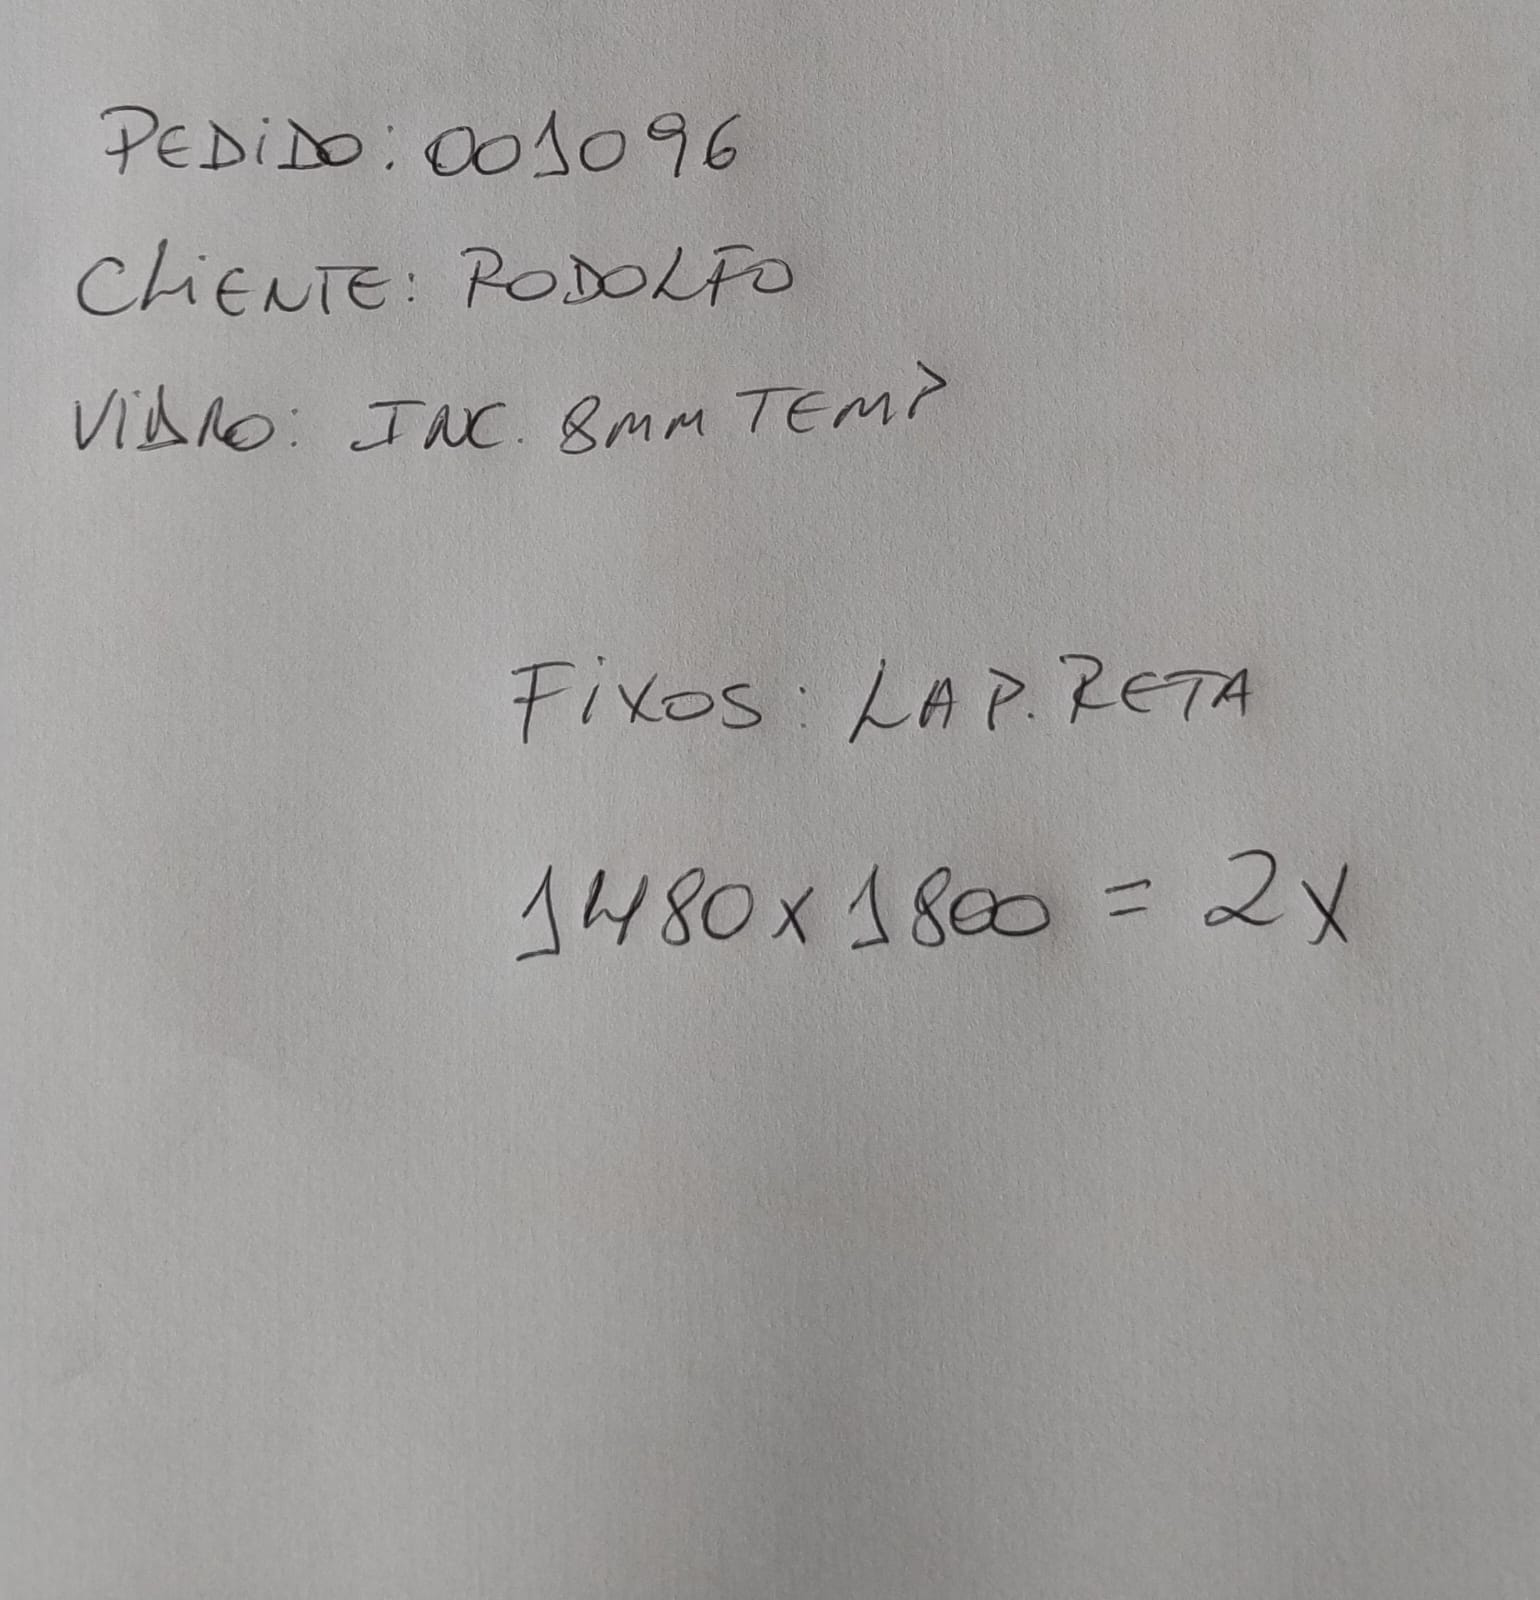 PEDiDO: 001096
CLiENTE: RODOLFO
ViDRO: INC. 8MM TEMP
FiXOS: LAP. RETA
1480 x 1800 = 2X